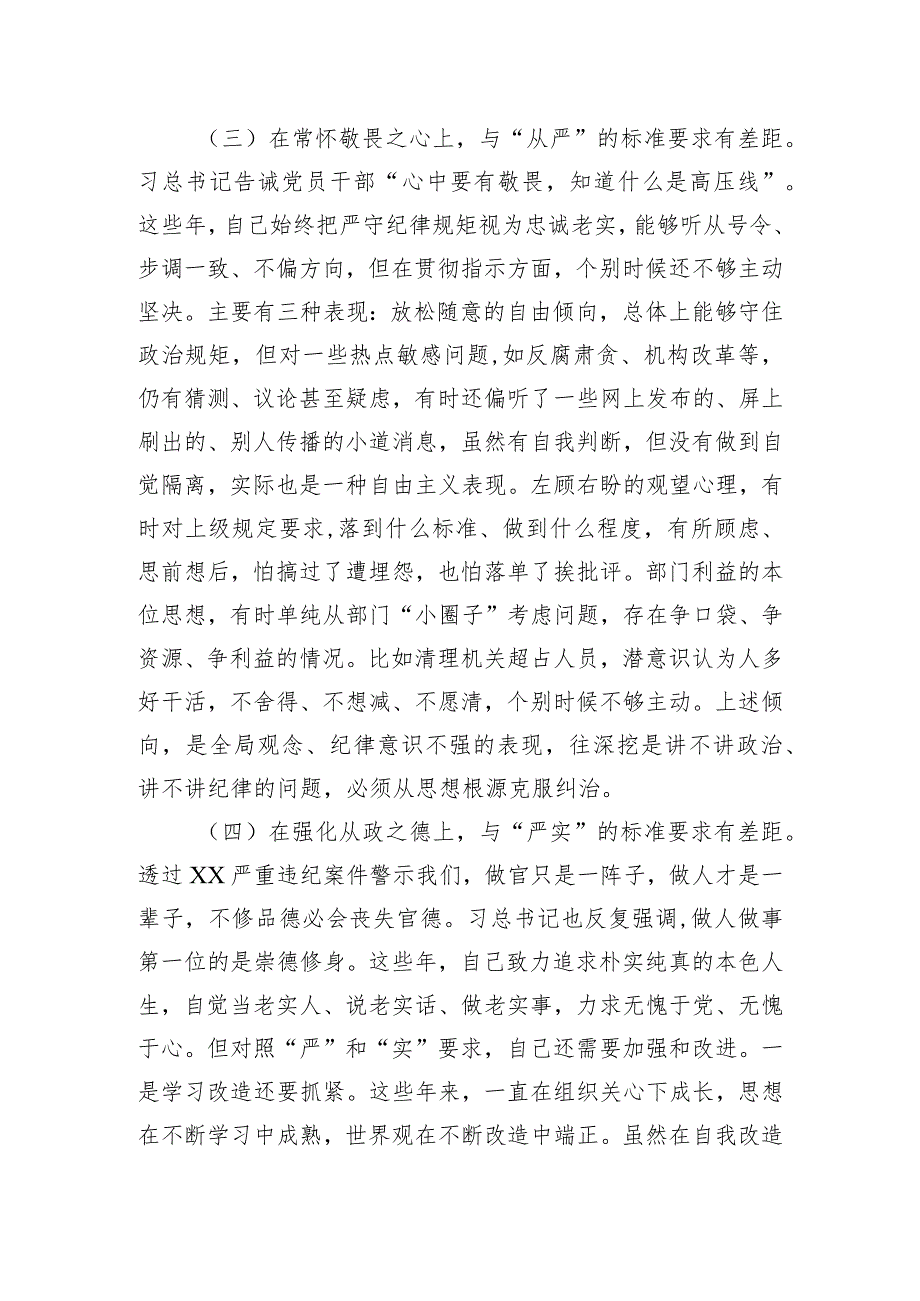 （三）在常怀敬畏之心上，与“从严”的标准要求有差距。
习总书记告诫党员干部“心中要有敬畏，知道什么是高压线”。
这些年，自己始终把严守纪律规矩视为忠诚老实，能够听从号令、
步调一致、不偏方向，但在贯彻指示方面，个别时候还不够主动
坚决。主要有三种表现：放松随意的自由倾向，总体上能够守住
政治规矩，但对一些热点敏感问题,如反腐肃贪、机构改革等，
仍有猜测、议论甚至疑虑，有时还偏听了一些网上发布的、屏上
刷出的、别人传播的小道消息，虽然有自我判断，但没有做到自
觉隔离，实际也是一种自由主义表现。左顾右盼的观望心理，有
时对上级规定要求,落到什么标准、做到什么程度，有所顾虑、
思前想后，怕搞过了遭埋怨，也怕落单了挨批评。部门利益的本
位思想，有时单纯从部门“小圈子”考虑问题，存在争口袋、争
资源、争利益的情况。比如清理机关超占人员，潜意识认为人多
好干活，不舍得、不想减、不愿清，个别时候不够主动。上述倾
向，是全局观念、纪律意识不强的表现，往深挖是讲不讲政治、
讲不讲纪律的问题，必须从思想根源克服纠治。
（四）在强化从政之德上，与“严实”的标准要求有差距。
透过XX严重违纪案件警示我们，做官只是一阵子，做人才是一
辈子，不修品德必会丧失官德。习总书记也反复强调,做人做事
第一位的是崇德修身。这些年，自己致力追求朴实纯真的本色人
生，自觉当老实人、说老实话、做老实事，力求无愧于党、无愧
于心。但对照“严”和“实”要求，自己还需要加强和改进。一
是学习改造还要抓紧。这些年来，一直在组织关心下成长，思想
在不断学习中成熟，世界观在不断改造中端正。虽然在自我改造